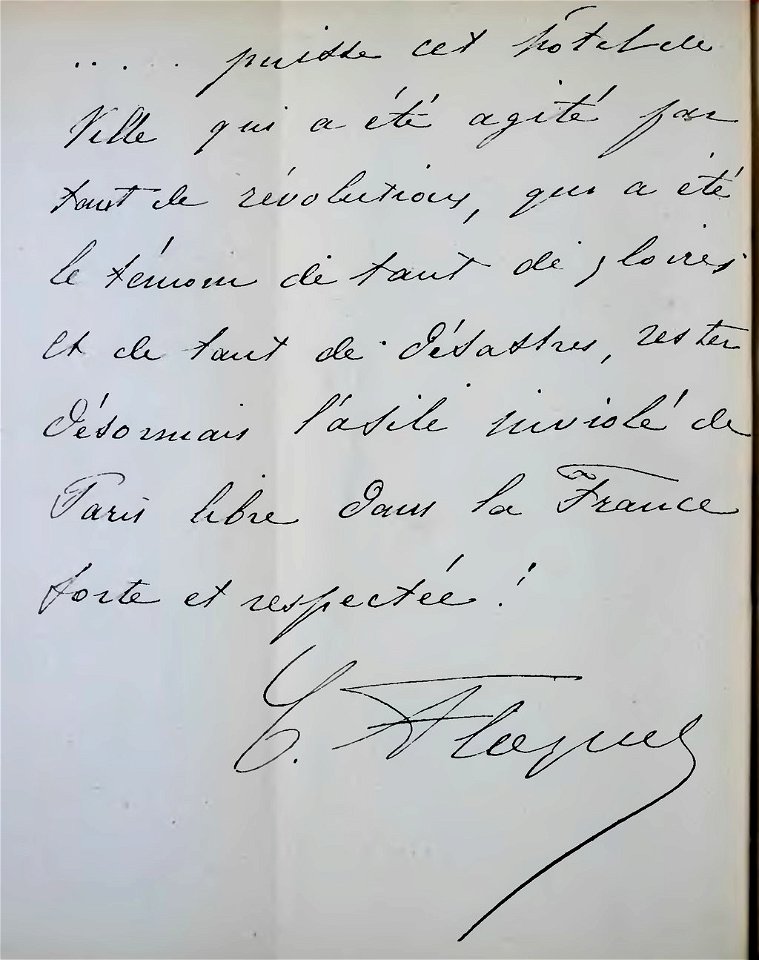 ..... puisse cet hôtel de
Ville qui a été agité par
tant de révolutions, qui a été
le témoin de tant de gloires
et de tant de désastres, rester
désormais l'asile inviolé de
Paris libre dans la France
forte et respectée !
C. Floquet